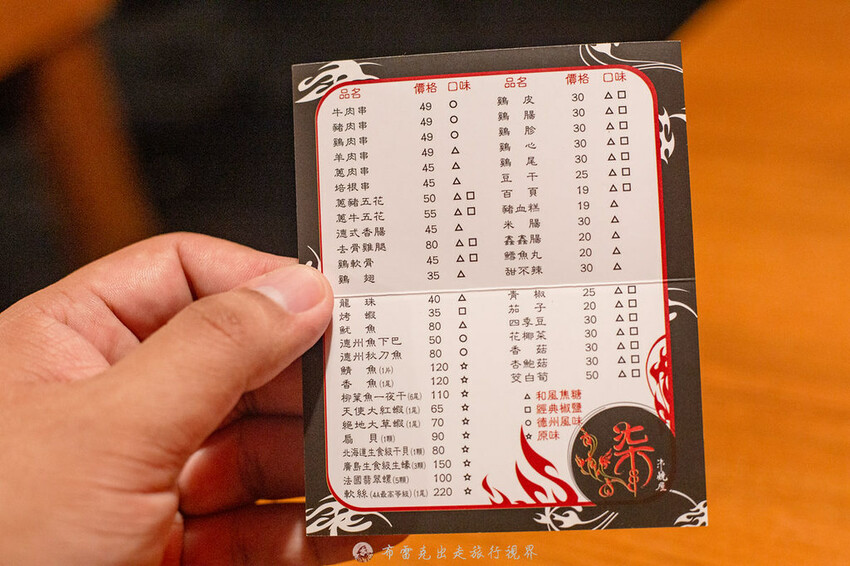 品名 價格 口味
牛肉串 49 ○
豬肉串 49 ○
鷄肉串 49 ○
羊肉串 49 △
蔥肉串 45 △
培根串 45 △
蔥豬五花 50 △□
蔥牛五花 55 △□
德式香腸 45 △
去骨雞腿 80 △□
鷄軟骨 45 △□
鷄翅 35 △
龍珠 40 △
烤蝦 35 □
魷魚 80 △
德州魚下巴 50 ○
德州秋刀魚 80 ○
鯖魚(1片) 120 ☆
香魚(1尾) 120 ☆
柳葉魚一夜干(6尾) 110 ☆
天使大紅蝦(1尾) 65 ☆
絕地大草蝦(1尾) 70 ☆
扇貝(1顆) 90 ☆
北海道生食級干貝(1顆) 80 ☆
廣島生食級生蠔(3顆) 150 ☆
法國翡翠螺(5顆) 100 ☆
軟絲(4A最高等級)(1尾) 220 ☆
品名 價格 口味
鷄皮 30 △□
鷄腸 30 △□
鷄胗 30 △□
鷄心 30 △□
鷄尾 30 △□
豆干 25 △□
百頁 19 △□
豬血糕 19 △
米腸 30 △
鑫鑫腸 20 △
鱈魚丸 20 △
甜不辣 30 △
青椒 25 △□
茄子 20 △□
四季豆 30 △□
花椰菜 30 △□
香菇 30 △□
杏鮑菇 30 △□
筊白筍 50 △□
△和風焦糖
□經典椒鹽
○德州風味
☆原味
柒串
布雷克出走旅行視界